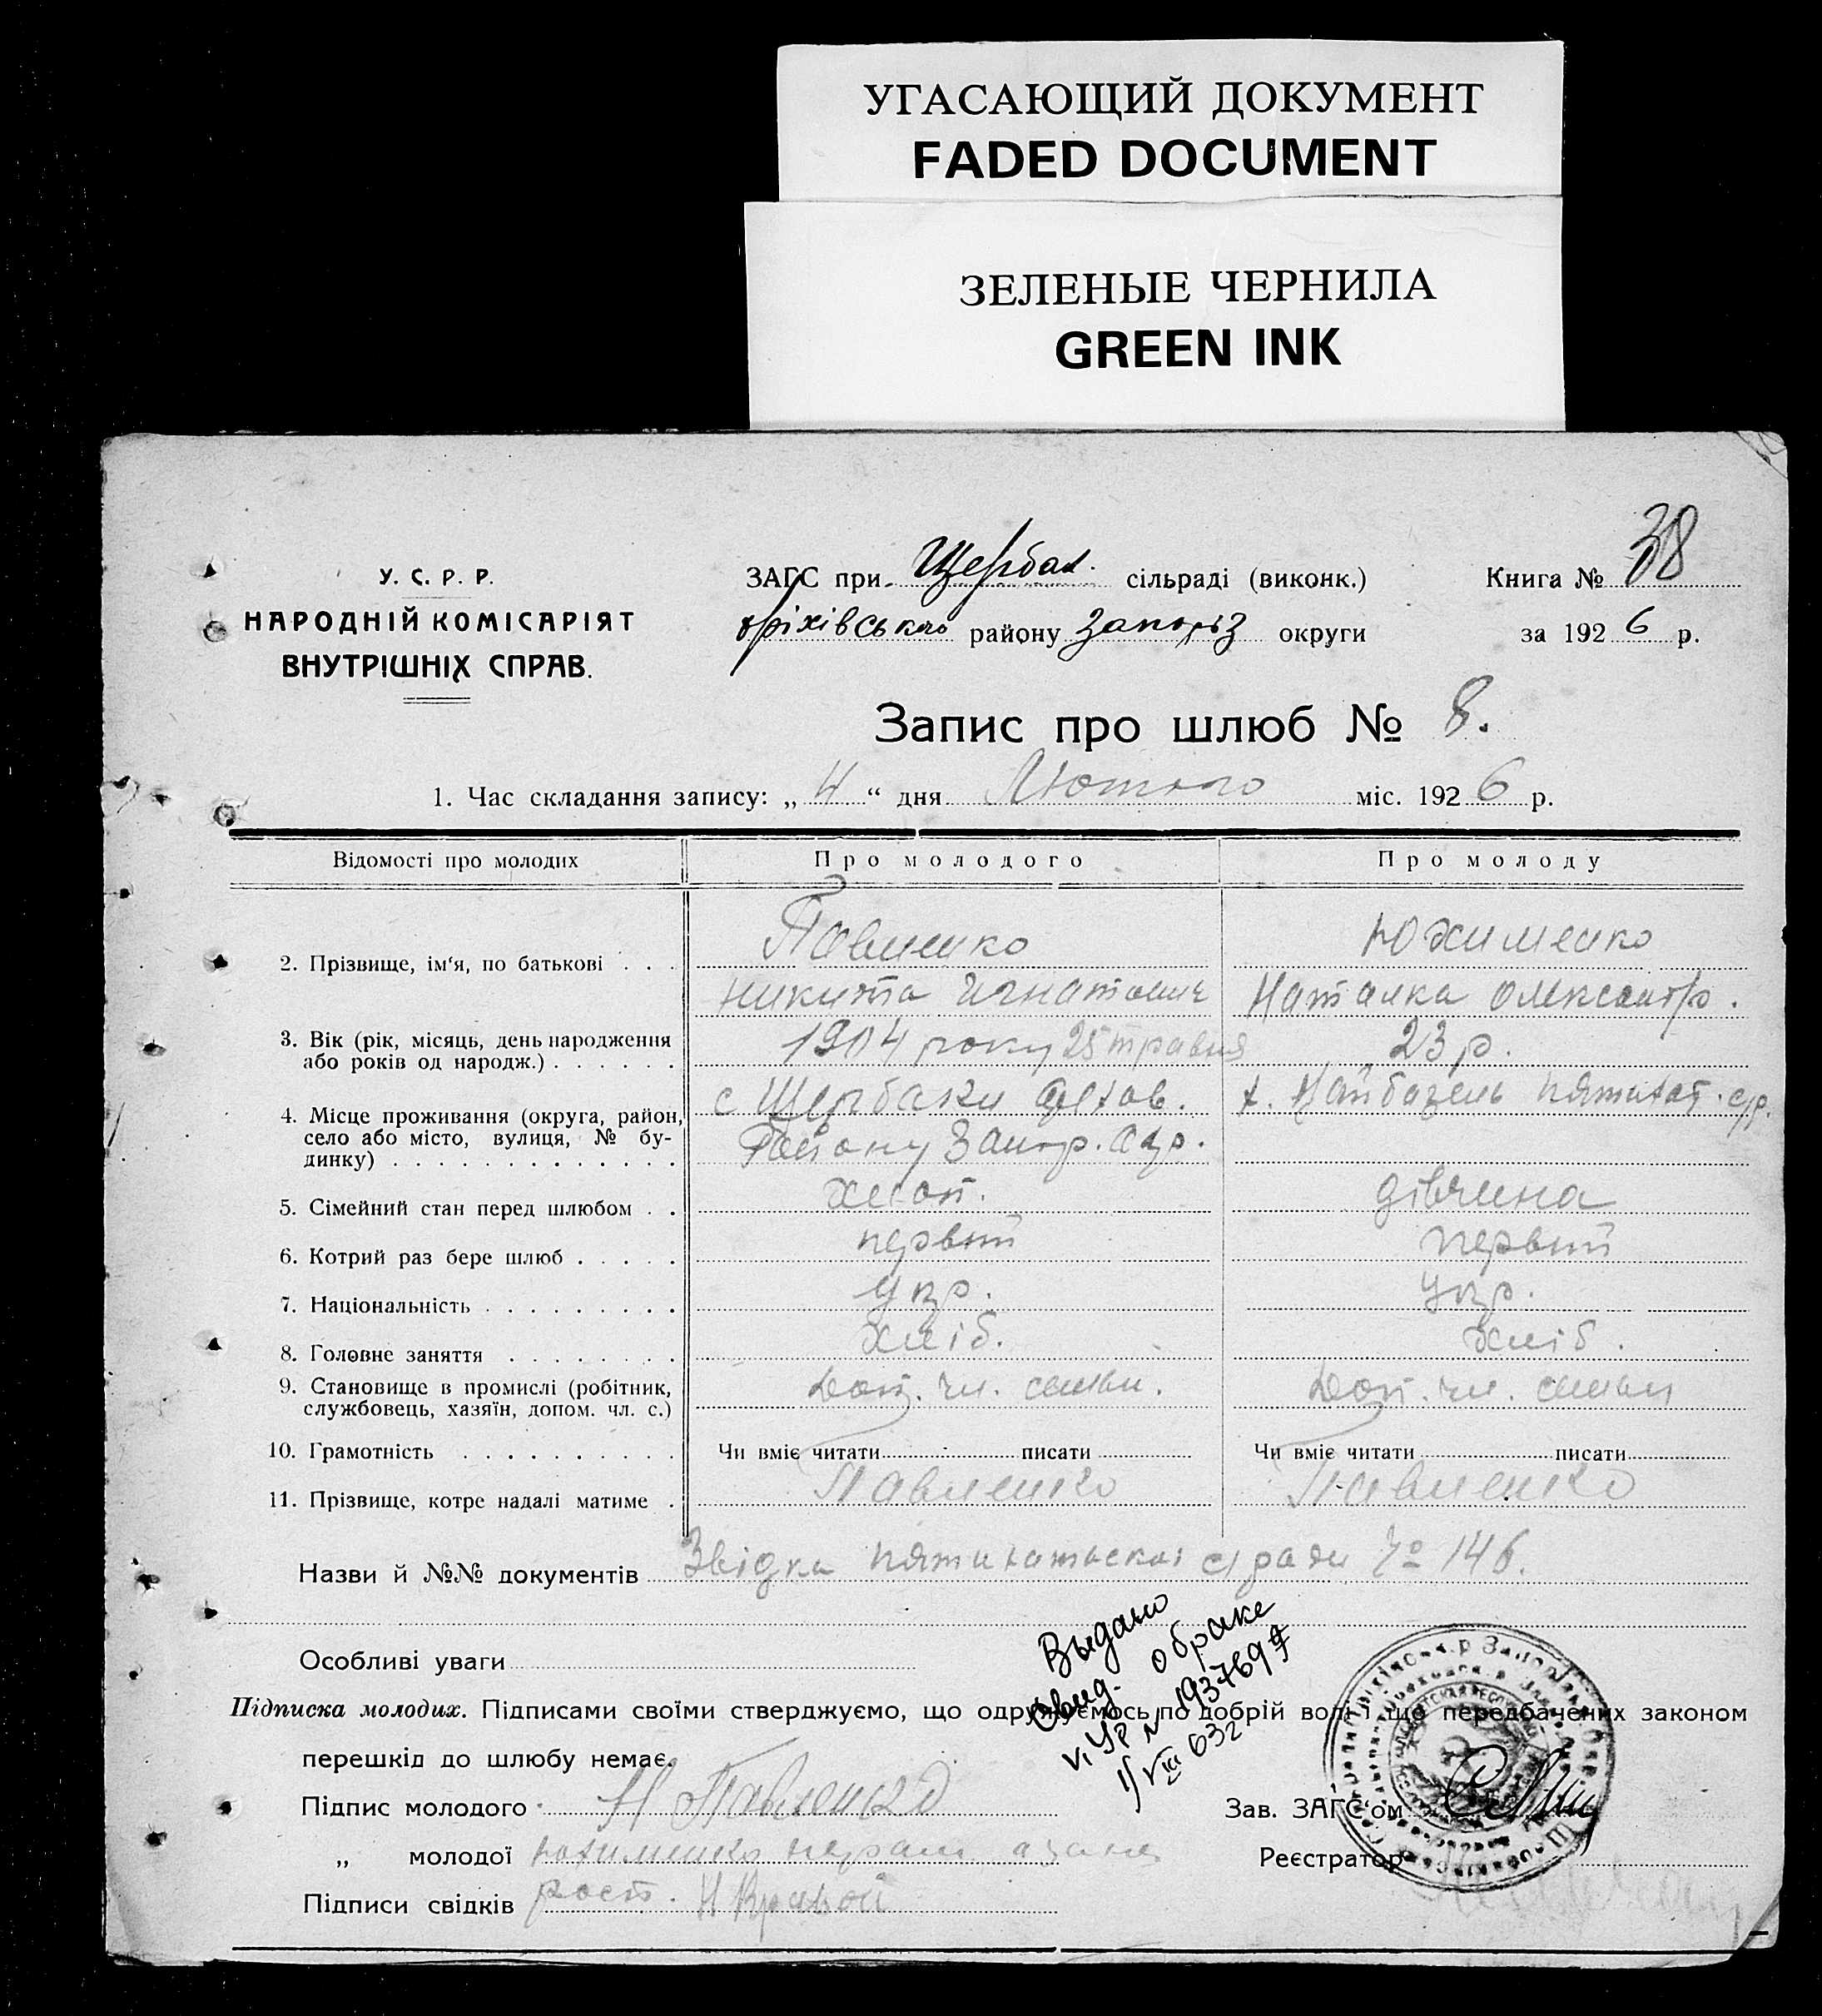 УГАСАЮЩИЙ ДОКУМЕНТ
FADED DOCUMENT
ЗЕЛЕНЫЕ ЧЕРНИЛА
GREEN INK
У. С. Р. Р.
НАРОДНІЙ КОМІСАРІЯТ
ВНУТРІШНІХ СПРАВ.
ЗАГС при Щербак. сільраді (виконк.)
Оріхівського району Запоріз округи
Книга № 38
за 1926 р.
Запис про шлюб № 8.
1. Час складання запису: „ 4 “ дня Лютого міс. 1926 р.
Відомості про молодих Про молодого Про молоду
2. Прізвище, ім'я, по батькові Павленко Юхименко
Никита Игнатович Наталка Олександр.
3. Вік (рік, місяць, день народження 1904 року 25 травня 23 р.
або років од народж.)
4. Місце проживання (округа, район, с Щербаки Оріхов. х. пятихат. с/р.
село або місто, вулиця, № бу- Району Запор. окр.
динку)
5. Сімейний стан перед шлюбом хлоп. дівчина
6. Котрий раз бере шлюб первий первий
7. Національність укр. укр.
8. Головне заняття хліб. хліб.
9. Становище в промислі (робітник, Доп. чл. семьи. Доп. чл. семьи
службовець, хазяїн, допом. чл. с.)
10. Грамотність Чи вміє читати писати Чи вміє читати писати
11. Прізвище, котре надалі матиме Павленко Павленко
Назви й №№ документів Звідка пятихатьскої с/ради № 146.
Особливі уваги
Выдано
Свид. о браке
V. УР № 1937697
1/VIII 632
Підписка молодих. Підписами своїми стверджуємо, що одружуємось по добрій волі і що передбачених законом
перешкід до шлюбу немає.
Підпис молодого Н Павленко
Зав. ЗАГС'ом
„ молодої Юхименко
Реєстратор
Підписи свідків рост. Н Кривой